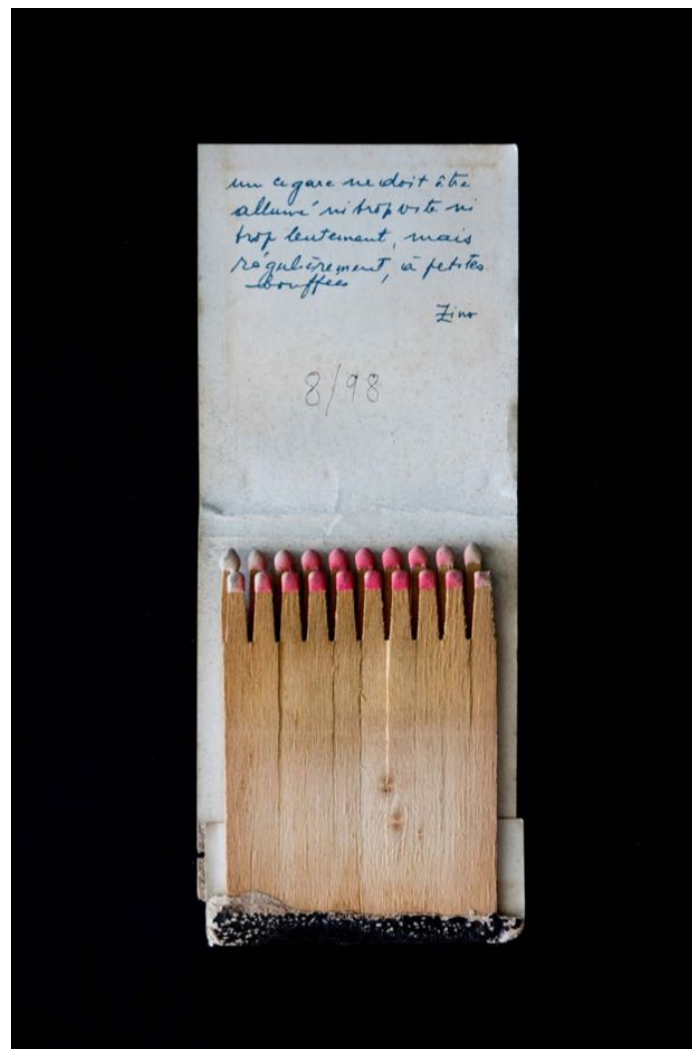 un cigare ne doit être
allumé ni trop vite ni
trop lentement, mais
régulièrement, à petites
bouffées
Zino
8/98